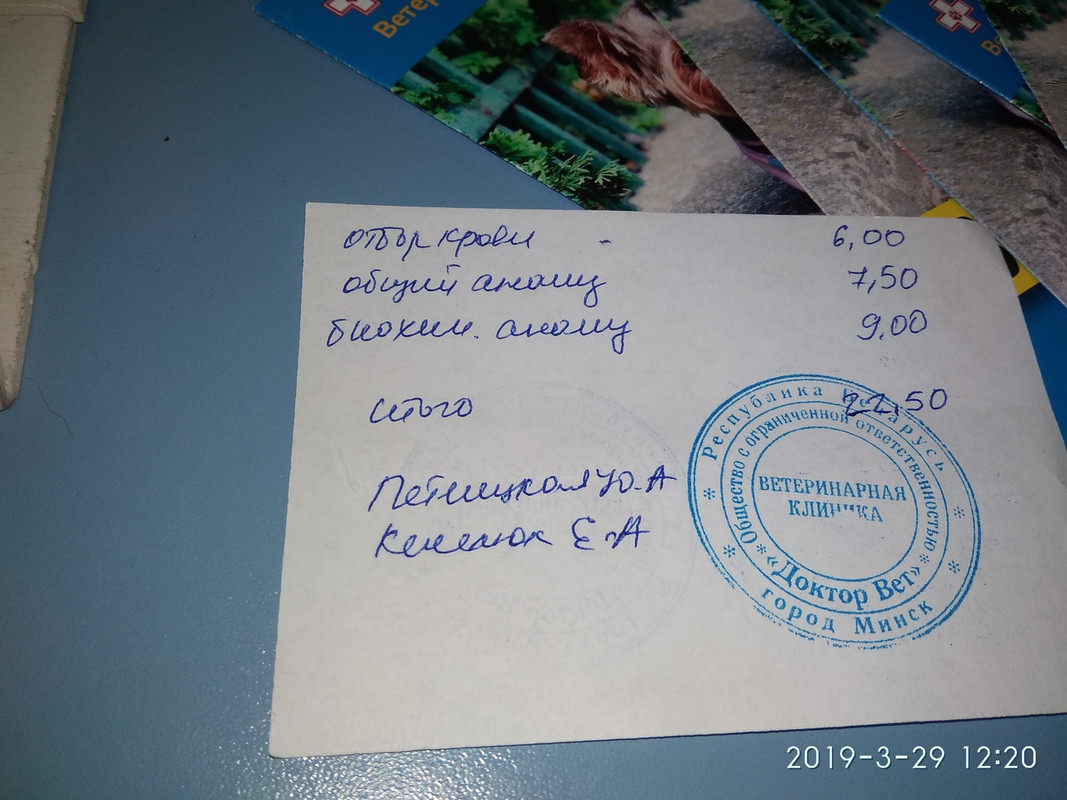 Ветер
В
отбор крови - 6,00
общий анализ 7,50
биохим. анализ 9.00
итого 22,50
Ю.А
Е.А
Республика Беларусь
Общество с ограниченной ответственностью
ВЕТЕРИНАРНАЯ
КЛИНИКА
«Доктор Вет»
город Минск
2019-3-29 12:20